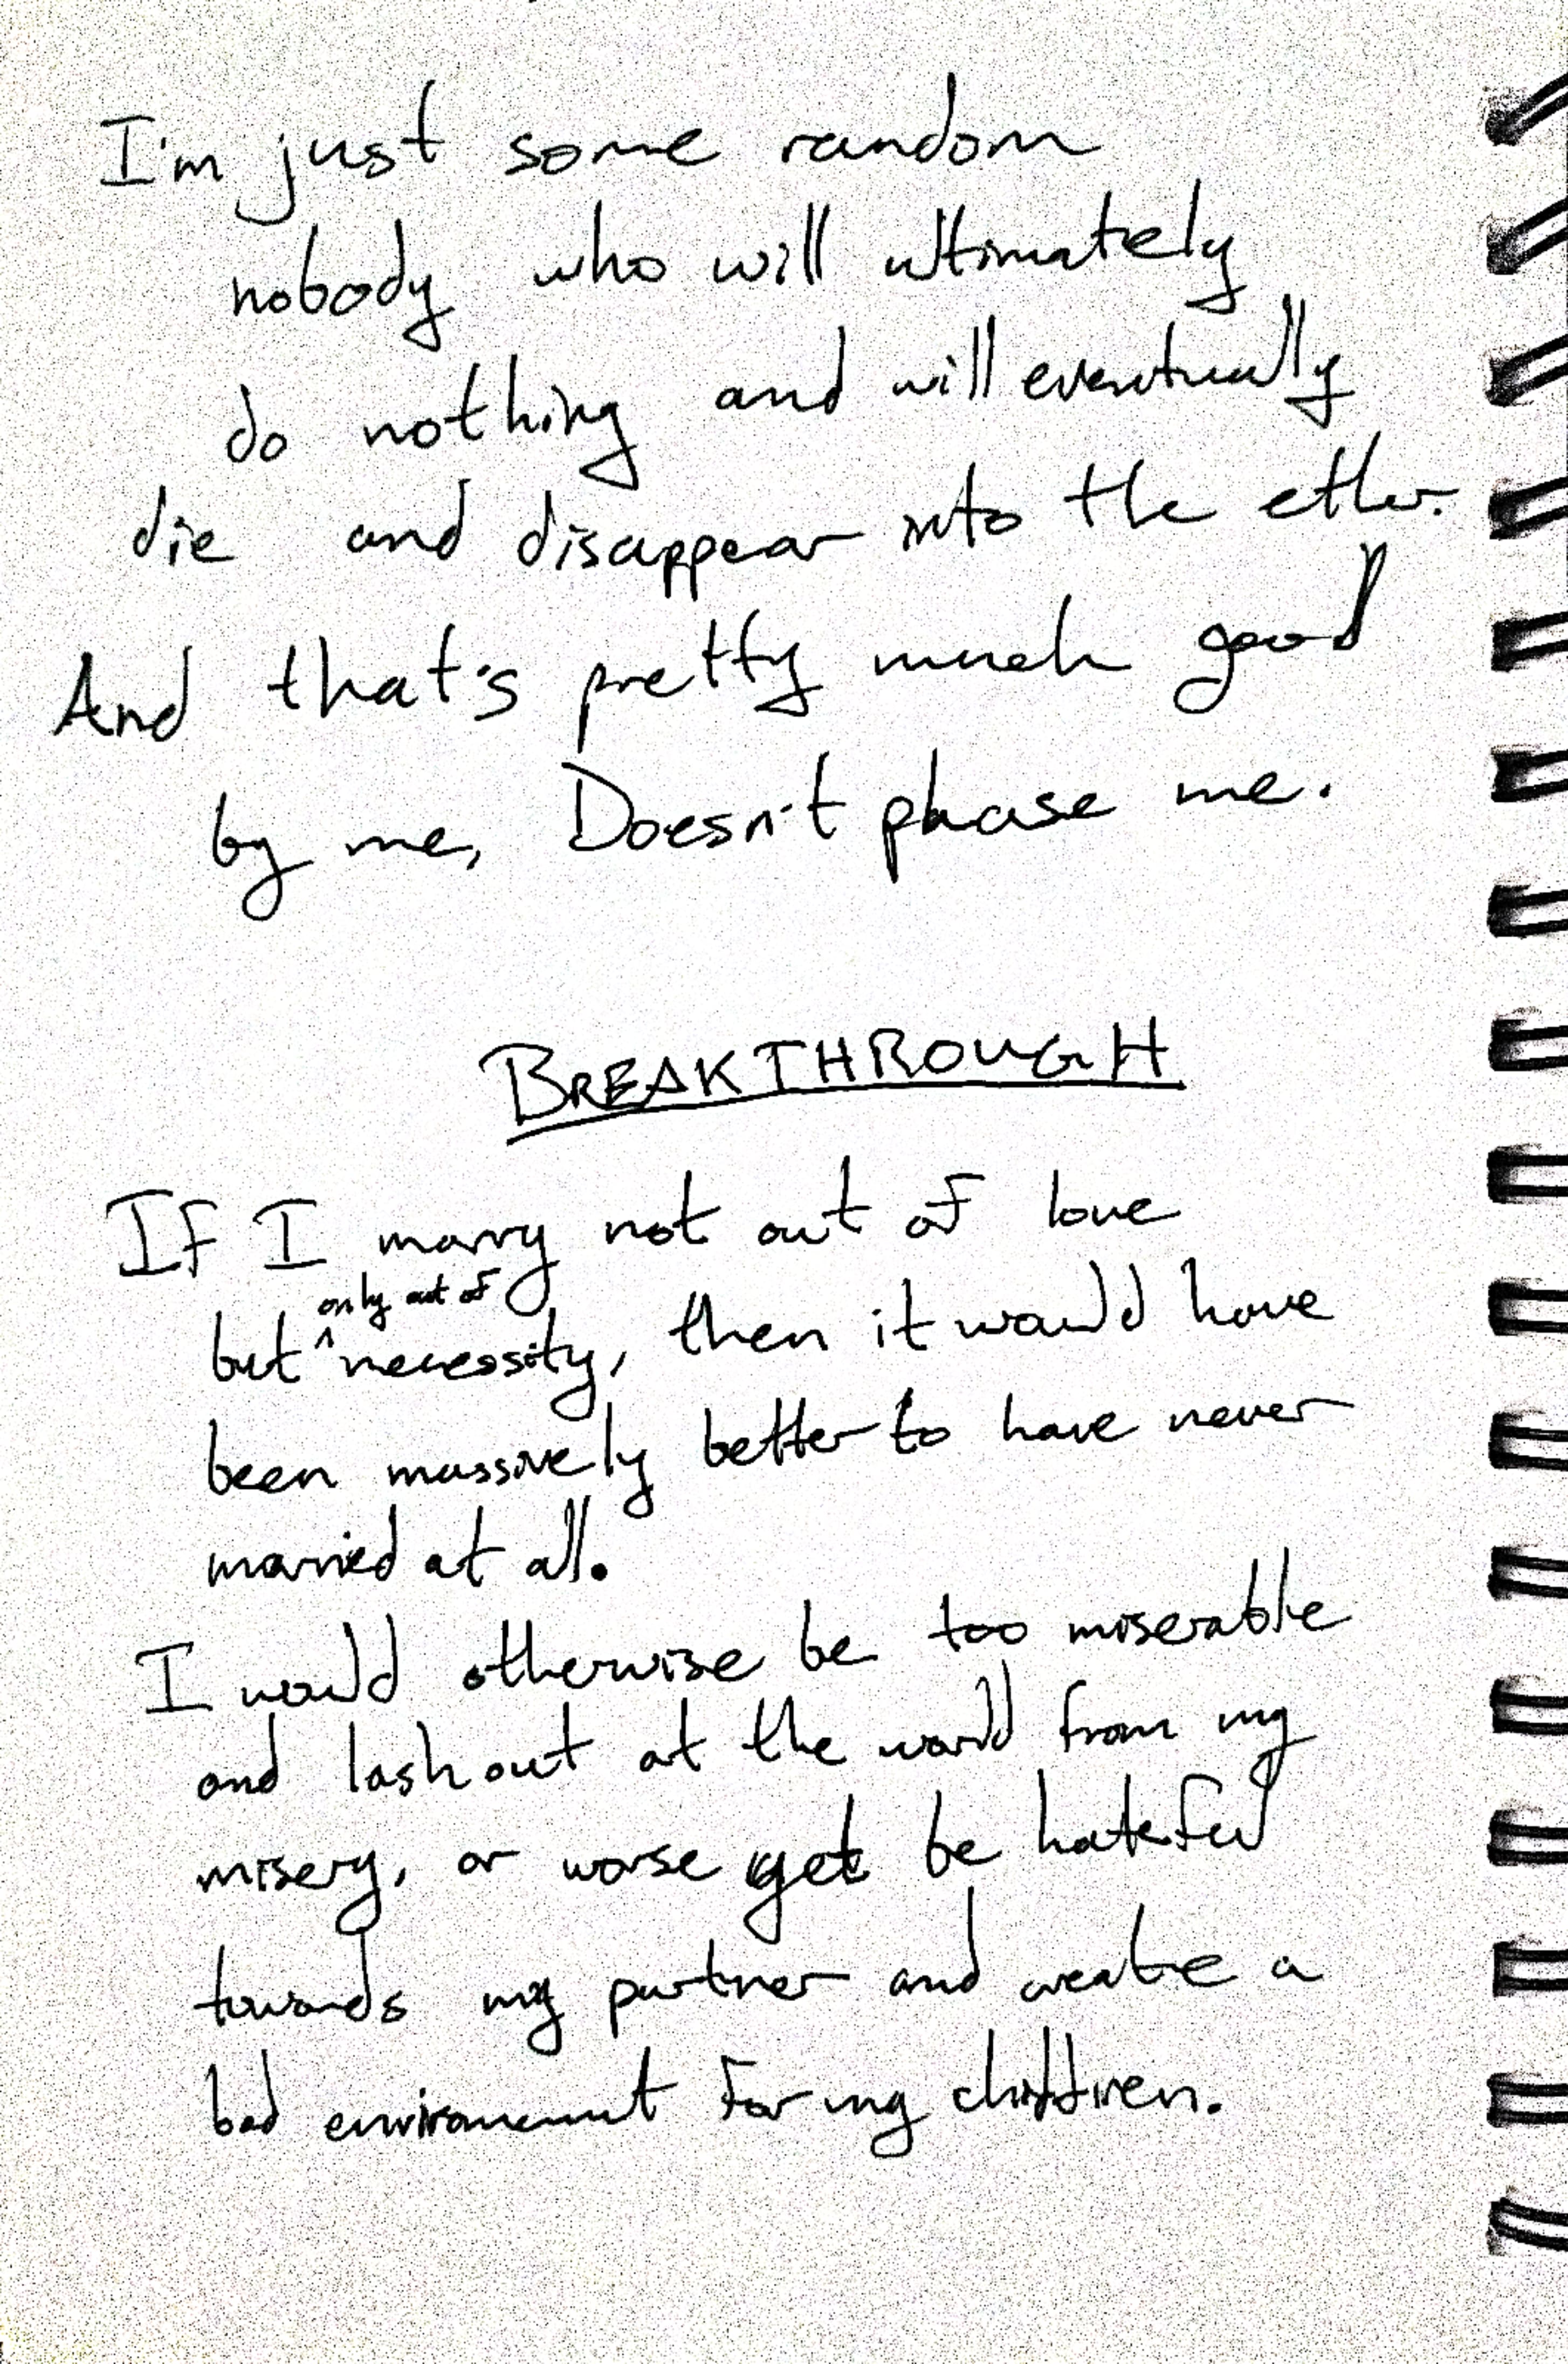 I'm just some random
nobody who will ultimately
do nothing and will eventually
die and disappear into the ether.
And that's pretty much good
by me, Doesn't phase me.
BREAKTHROUGH
If I marry not out of love
only out of
but ^ necessity, then it would have
been massively better to have never
married at all.
I would otherwise be too miserable
and lash out at the world from my
misery, or worse yet be hateful
towards my partner and create a
bad environment for my children.